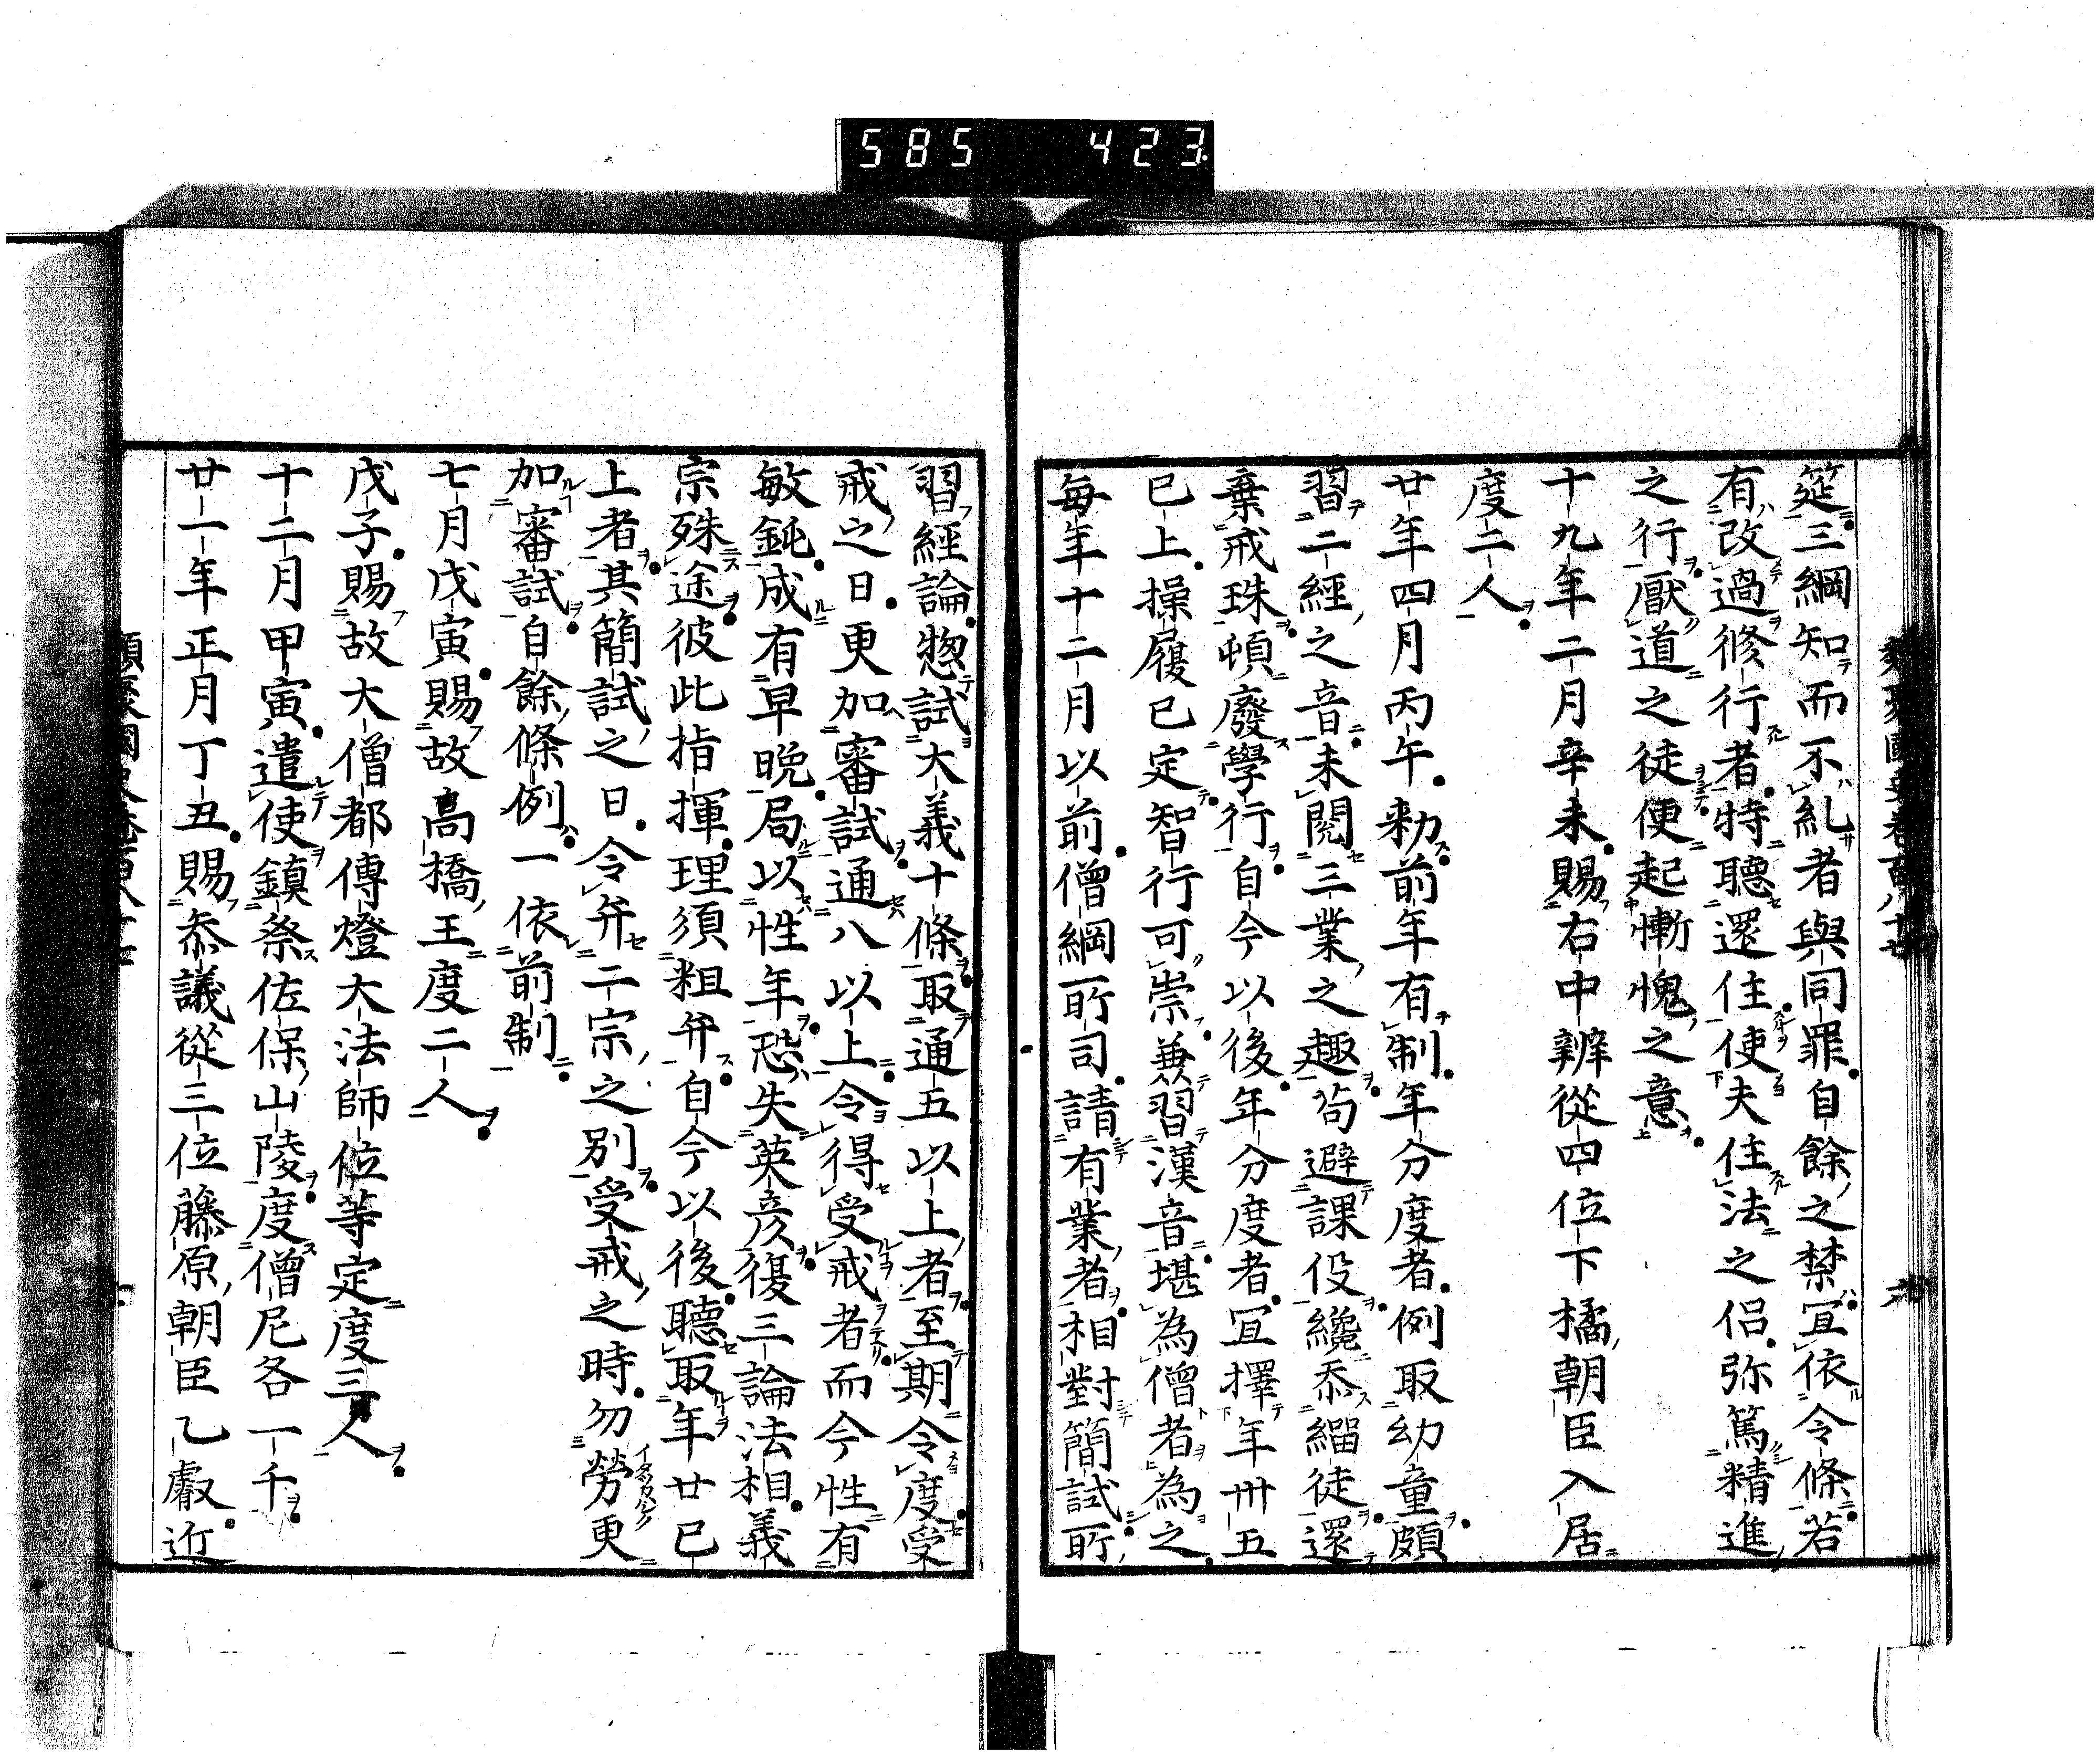 585 423
筵三綱知而不糺者與同罪自餘之禁宜依令條若
有改過修行者特聽還住使夫住法之侶弥篤精進
之行厭道之徒便起慚愧之意
十九年二月辛未賜右中辨從四位下橘朝臣入居
度二人
廿年四月丙午勑前年有制年分度者例取幼童頗
習二經之音未閱三業之趣苟避課役纔忝緇徒還
棄戒珠頓廢學行自今以後年分度者宜擇年卅五
已上操履已定智行可崇兼習漢音堪為僧者為之
每年十二月以前僧綱所司請有業者相對簡試所
習經論惣試大義十條取通五以上者至期令度受
戒之日更加審試通八以上令得受戒者而今性有
敏鈍成有早晩局以性年恐失英彦復三論法相義
宗殊途彼此指揮理須粗弁自今以後聽取年廿已
上者其簡試之日令弁二宗之別受戒之時勿勞更
加審試自餘條例一依前制
七月戊寅賜故高橋王度二人
戊子賜故大僧都傳燈大法師位等定度三人
十二月甲寅遣使鎮祭佐保山陵度僧尼各一千
廿一年正月丁丑賜叅議從三位藤原朝臣乙叡近